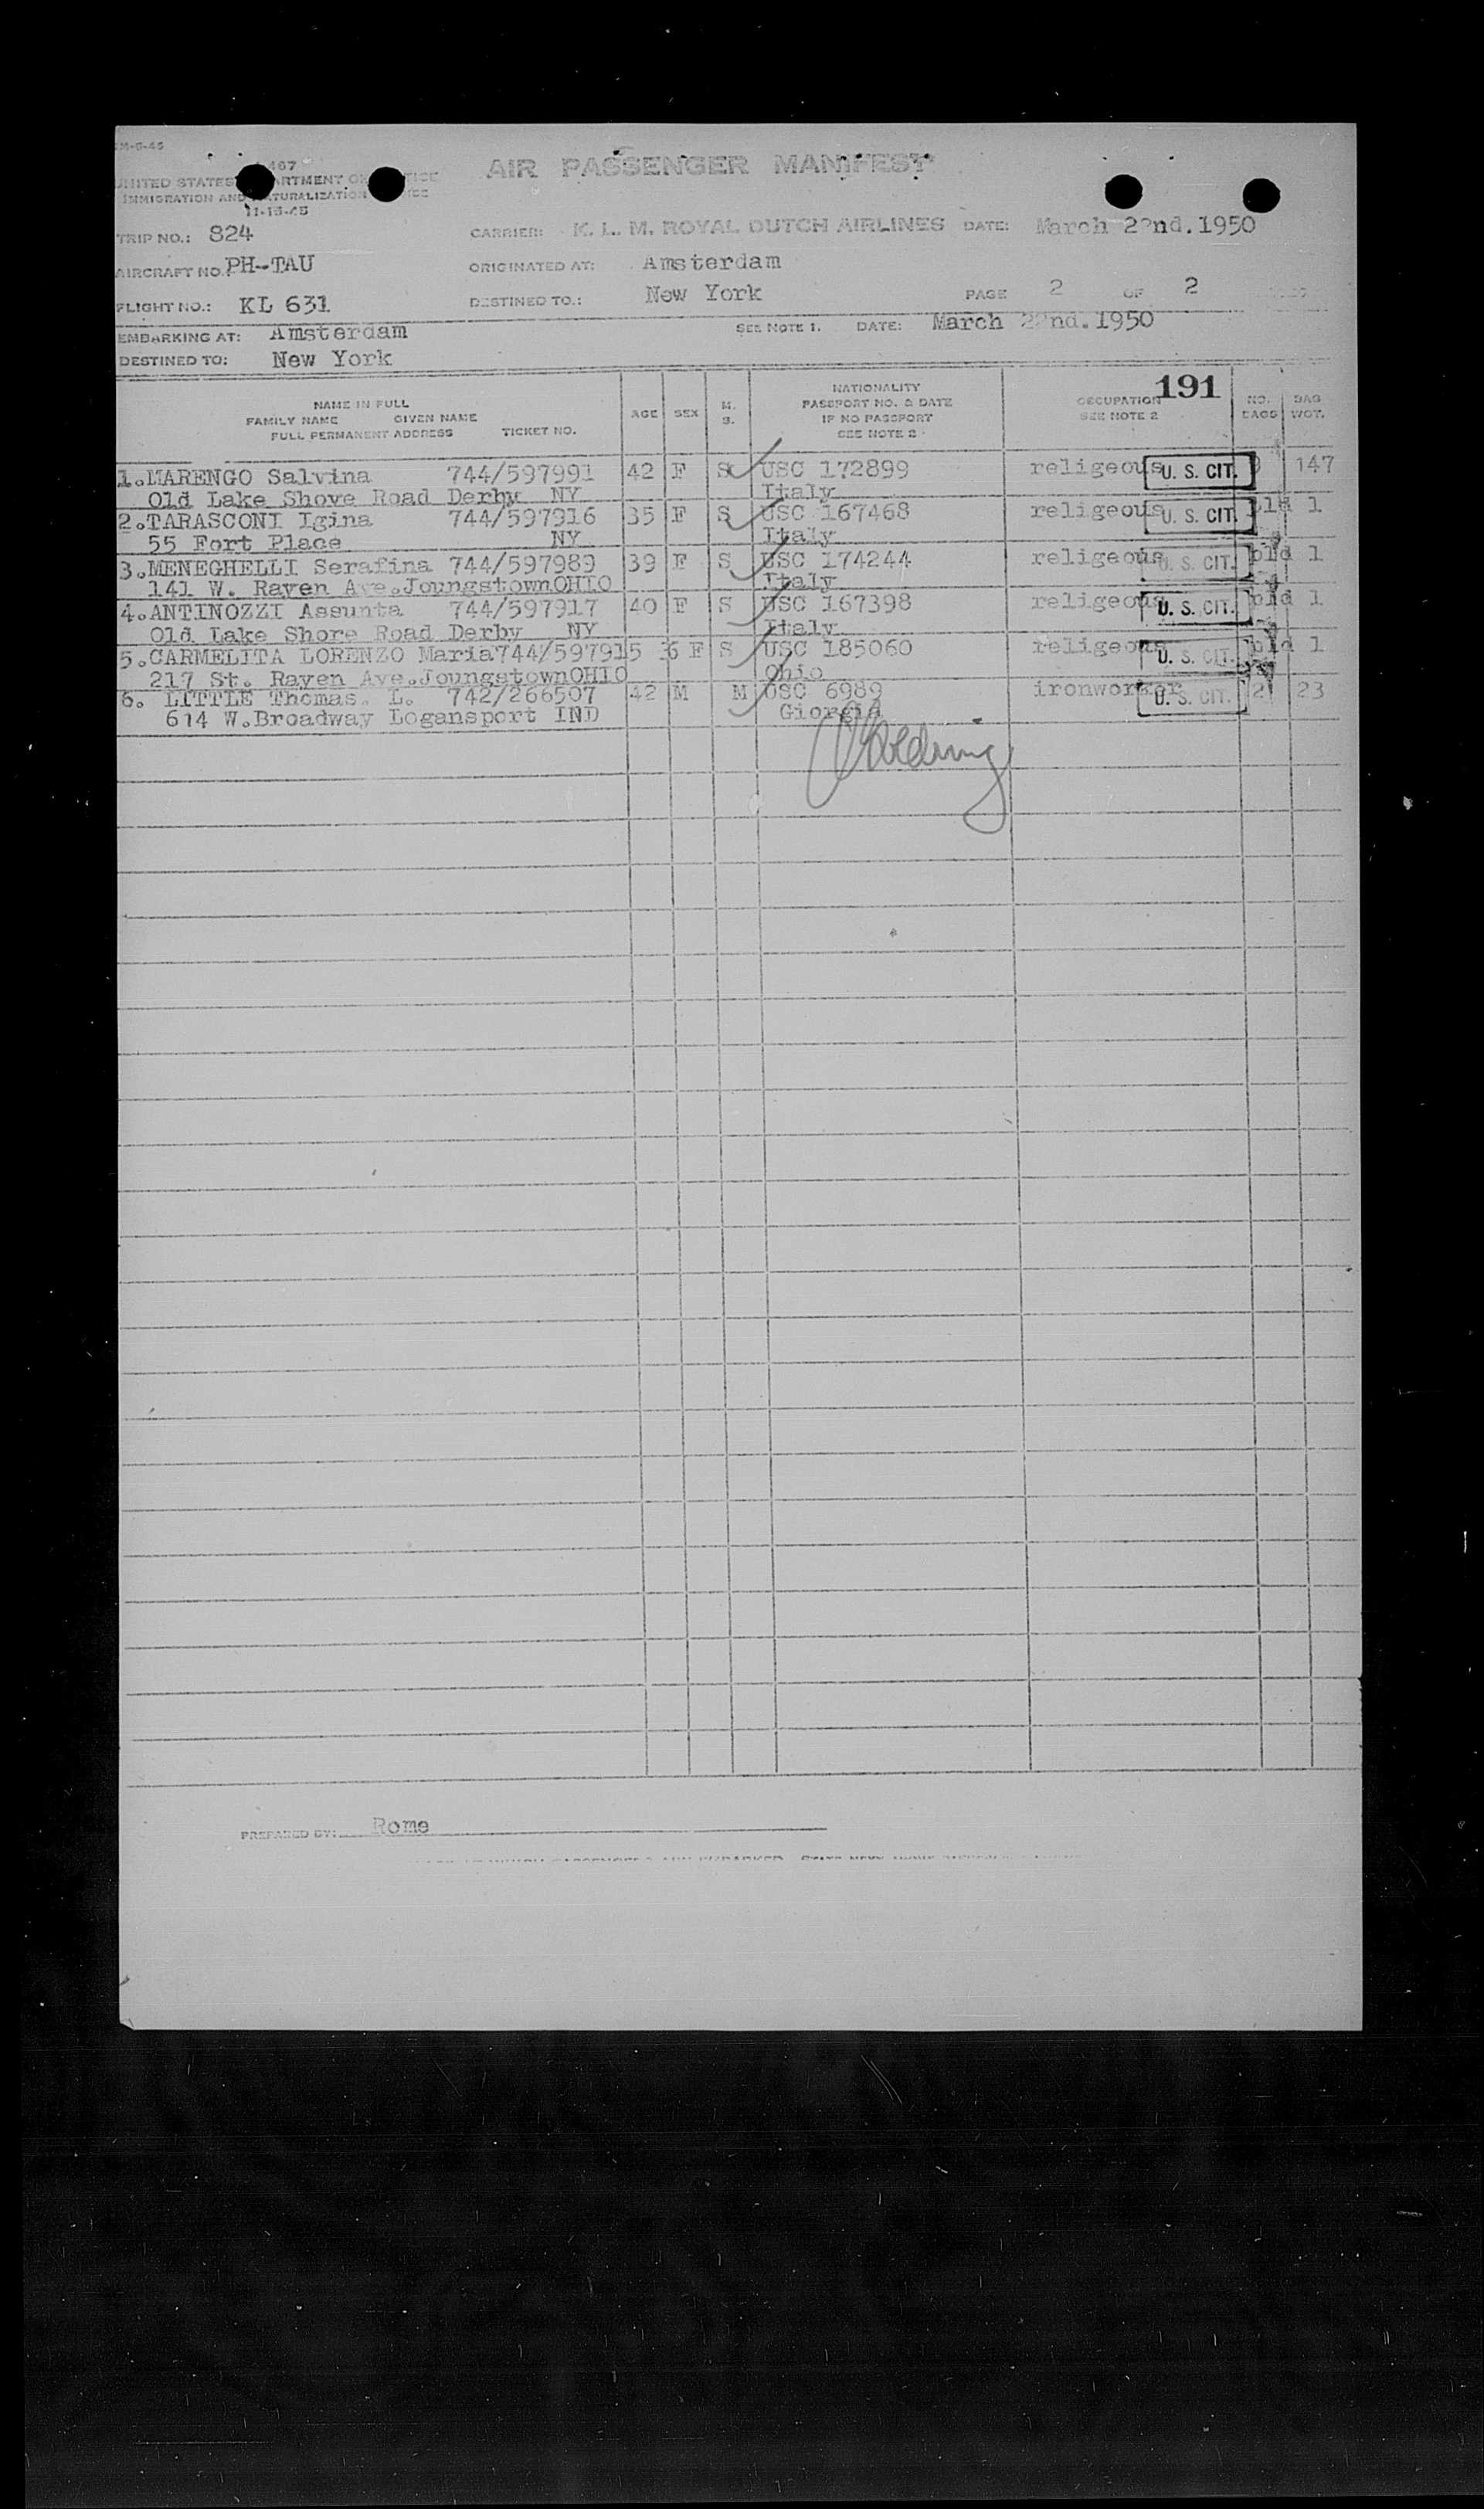 AIR PASSENGER MANIFEST
UNITED STATES
IMMIGRATION AND NATURALIZATION
11-15-45
TRIP NO.: 824 CARRIER: K. L. M. ROYAL DUTCH AIRLINES DATE: March 22nd.1950
AIRCRAFT NO. PH-TAU ORIGINATED AT: Amsterdam
FLIGHT NO.: KL 631 DESTINED TO.: New York PAGE 2 OF 2
EMBARKING AT: Amsterdam SEE NOTE 1. DATE: March 22nd.1950
DESTINED TO: New York
191
NAME IN FULL
FAMILY NAME GIVEN NAME
FULL PERMANENT ADDRESS TICKET NO.
AGE SEX M. S.
NATIONALITY
PASSPORT NO. & DATE
IF NO PASSPORT
SEE NOTE 2
OCCUPATION
SEE NOTE 2
NO. BAGS
BAG WGT.
1.MARENGO Salvina 744/597991 42 F S USC 172899 religeous U. S. CIT. 147
Old Lake Shove Road Derby NY Italy
2.TARASCONI Igina 744/597916 35 F S USC 167468 religeous U. S. CIT. pld 1
55 Fort Place NY Italy
3.MENEGHELLI Serafina 744/597989 39 F S USC 174244 religeous U. S. CIT. pld 1
141 W. Rayen Ave.JoungstownOHIO Italy
4.ANTINOZZI Assunta 744/597917 40 F S USC 167398 religeous U. S. CIT. pld 1
Old Lake Shore Road Derby NY Italy
5.CARMELITA LORENZO Maria744/597915 36 F S USC 185060 religeous U. S. CIT. pld 1
217 St. Rayen Ave.JoungstownOHIO Ohio
6. LITTLE Thomas. L. 742/266507 42 M M USC 6989 ironworker U. S. CIT. 2 23
614 W.Broadway Logansport IND Giorgia
PREPARED BY: Rome